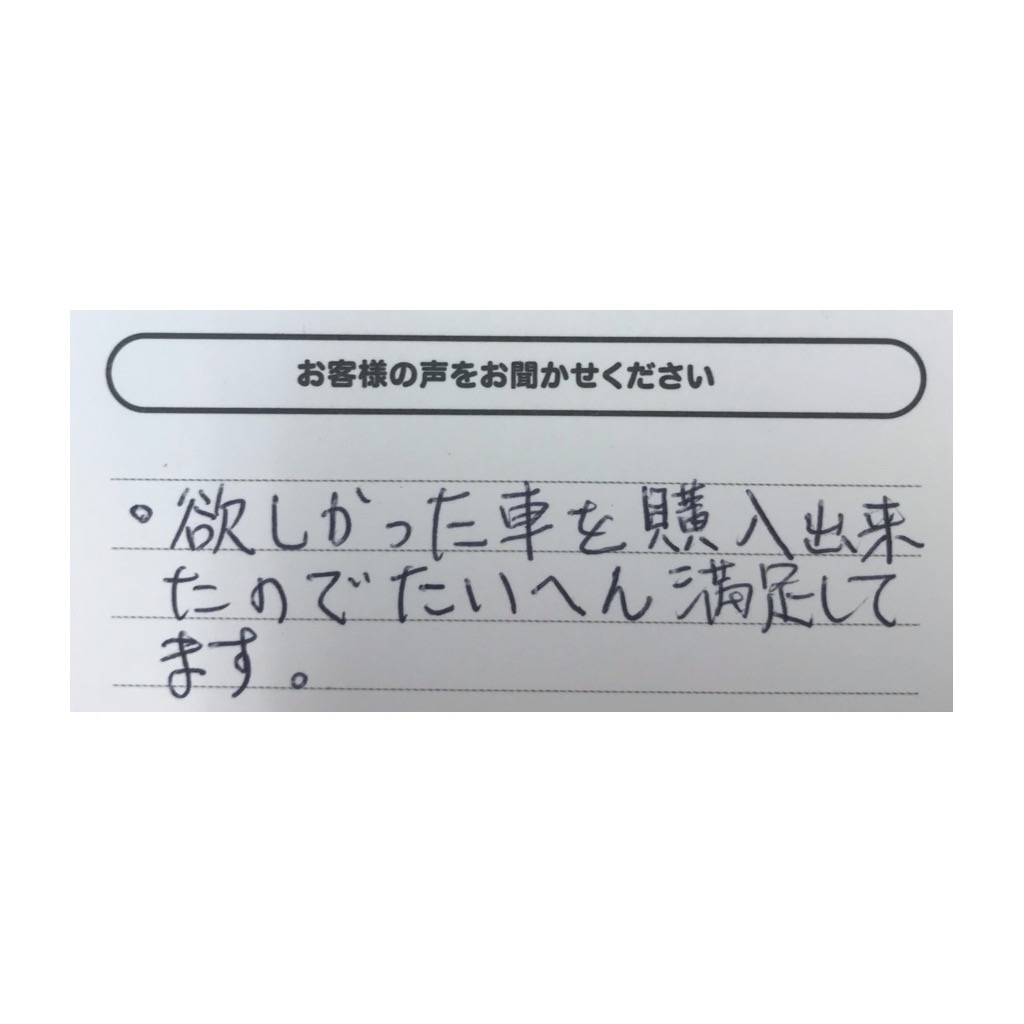 お客様の声をお聞かせください
。欲しかった車を購入出来
たのでたいへん満足して
ます。